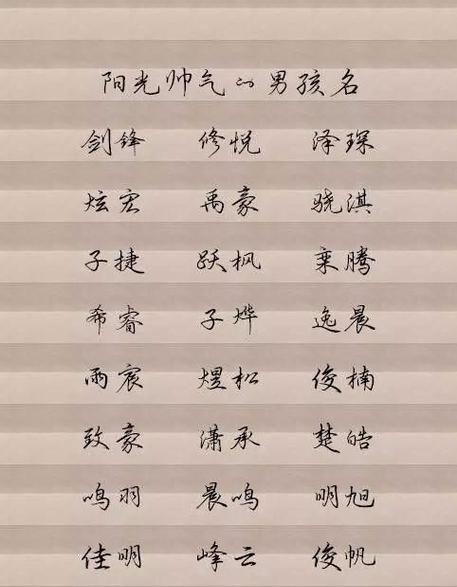 阳光帅气的男孩名
剑锋 修悦 泽琛
炫宏 禹豪 骁淇
子捷 跃枫 栾腾
希睿 子烨 逸晨
雨宸 煜松 俊楠
致豪 潇承 楚皓
鸣羽 晨鸣 明旭
佳明 峰云 俊帆